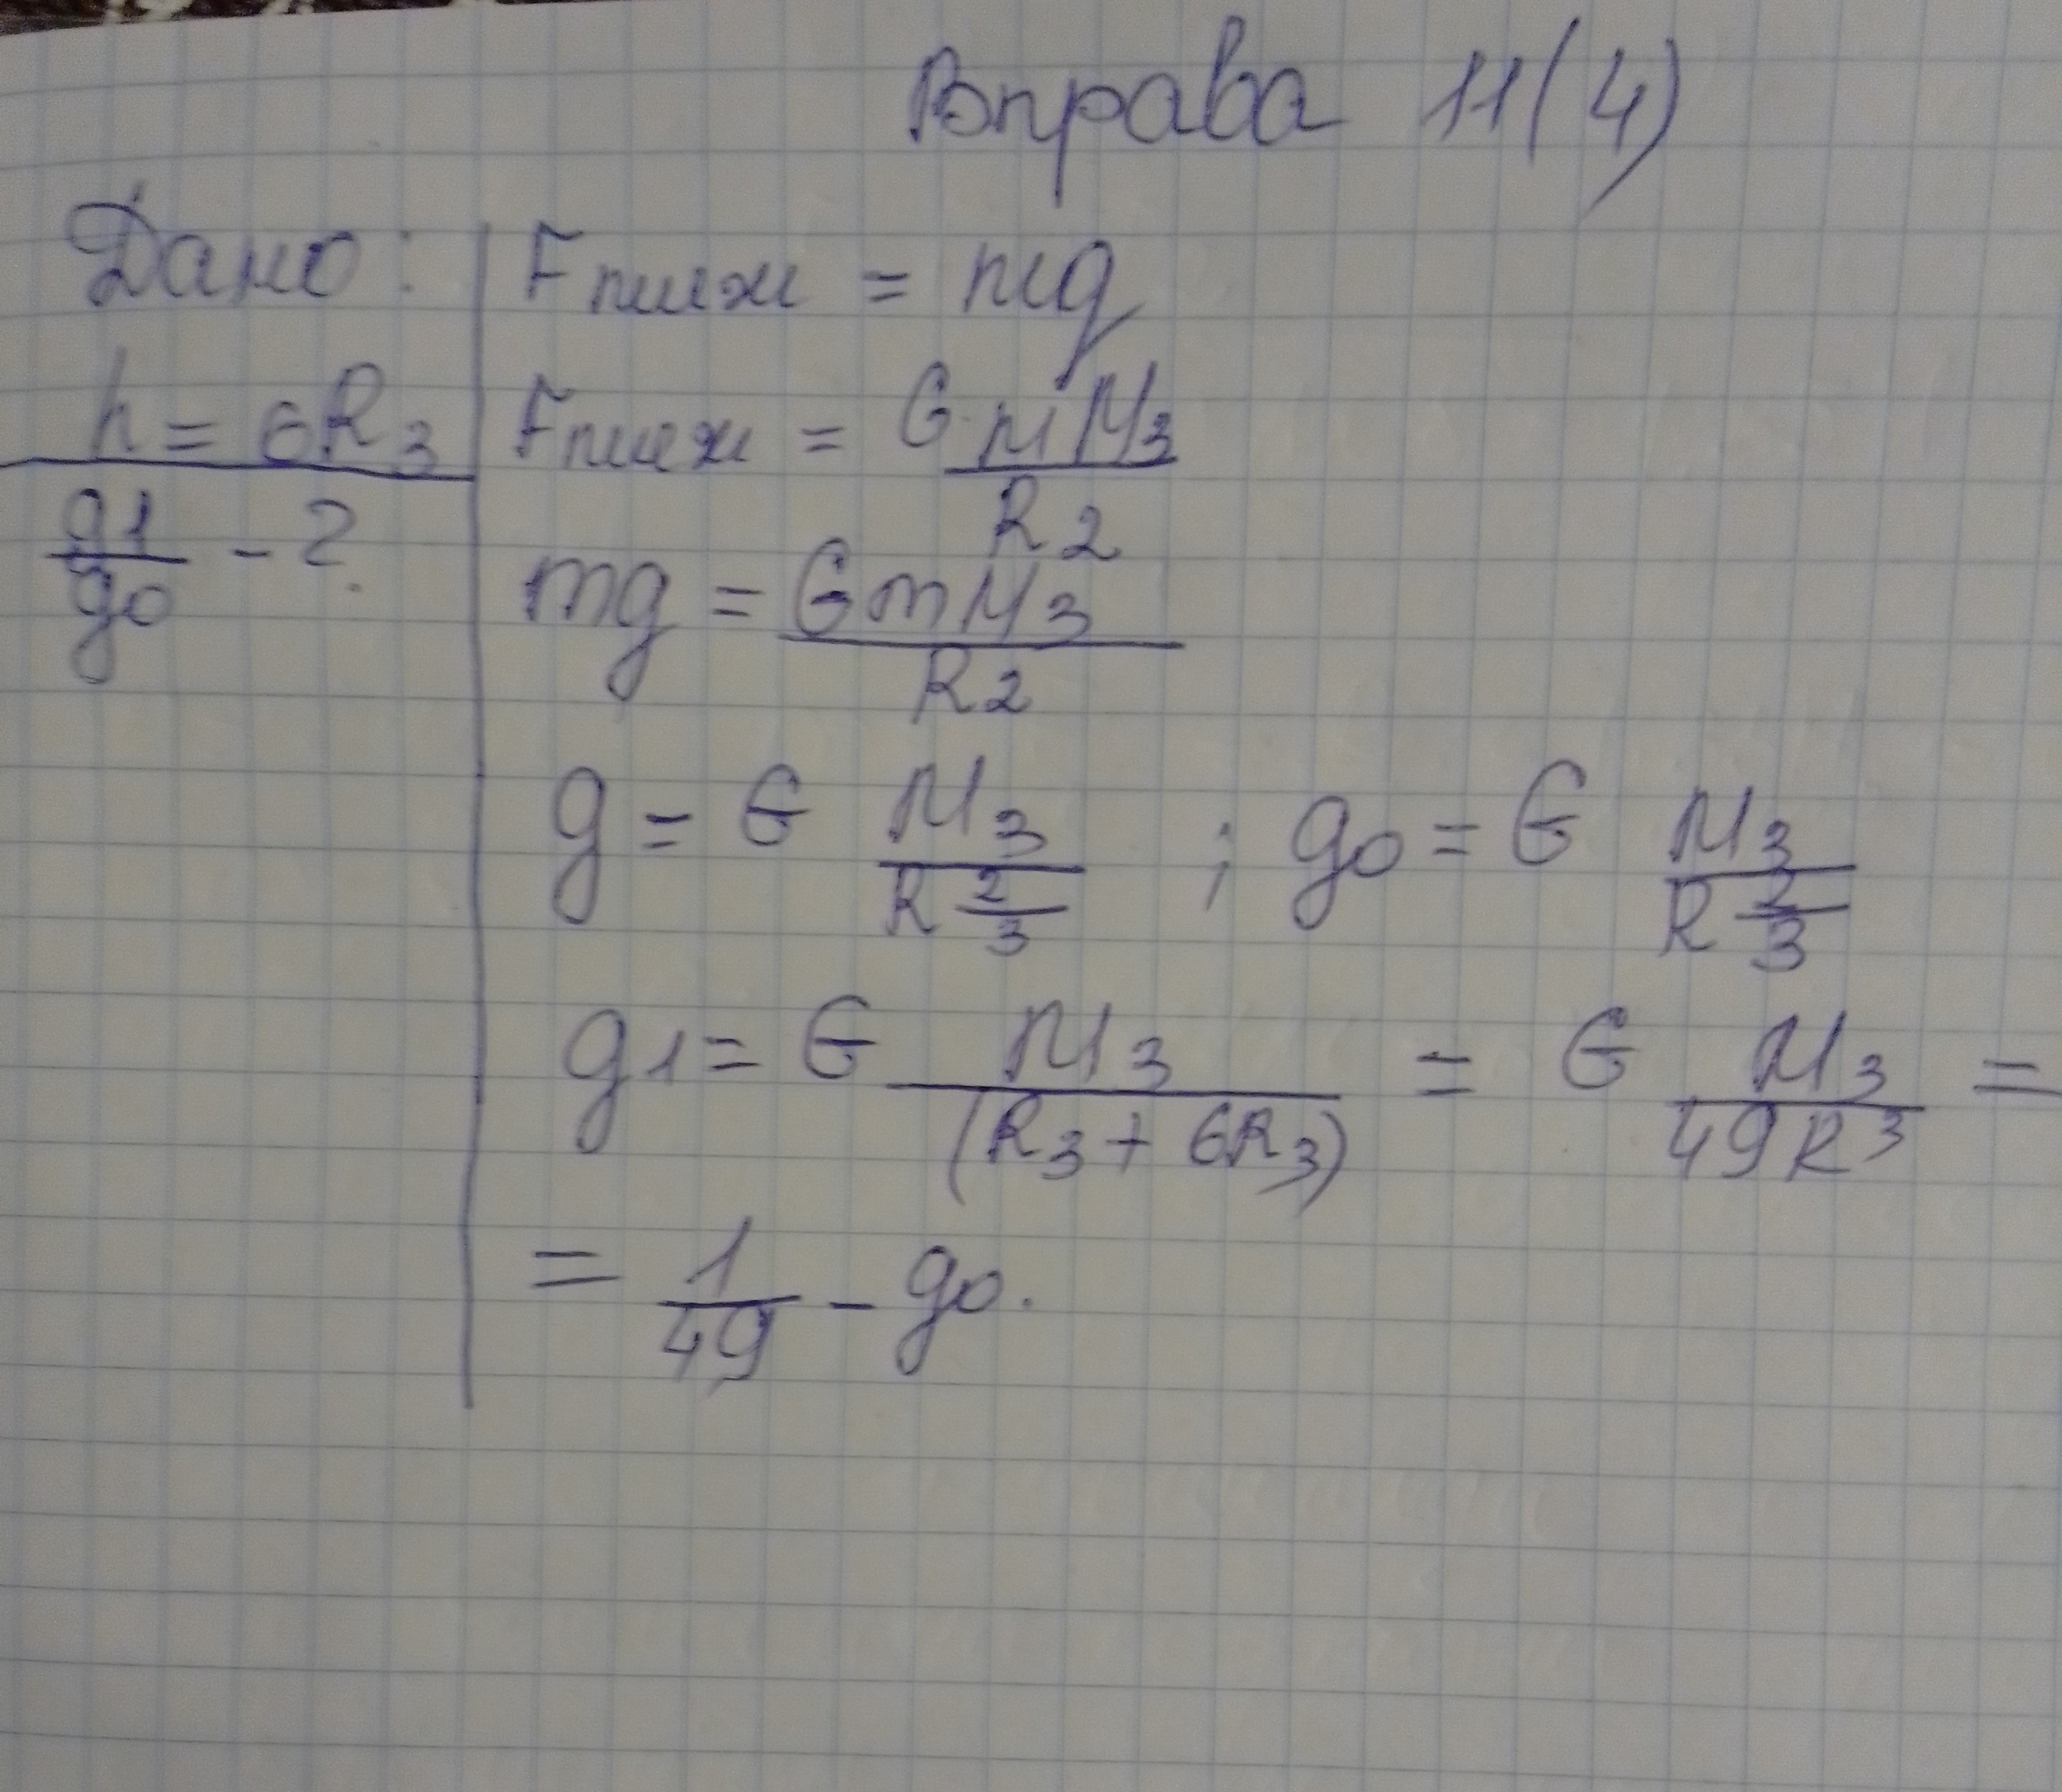 Вправа 11(4)
Дано:
h = 6R3
g1/g0 - ?
Fтяж = mg
Fтяж = G mM3/R2
mg = GmM3/R2
g = G M3/R 2/3 ; g0 = G M3/R 2/3
g1 = G M3/(R3 + 6R3) = G M3/49R³ =
= 1/49 - g0.